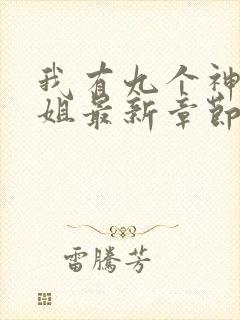 我有九个神
姐最新章節
雷騰芳